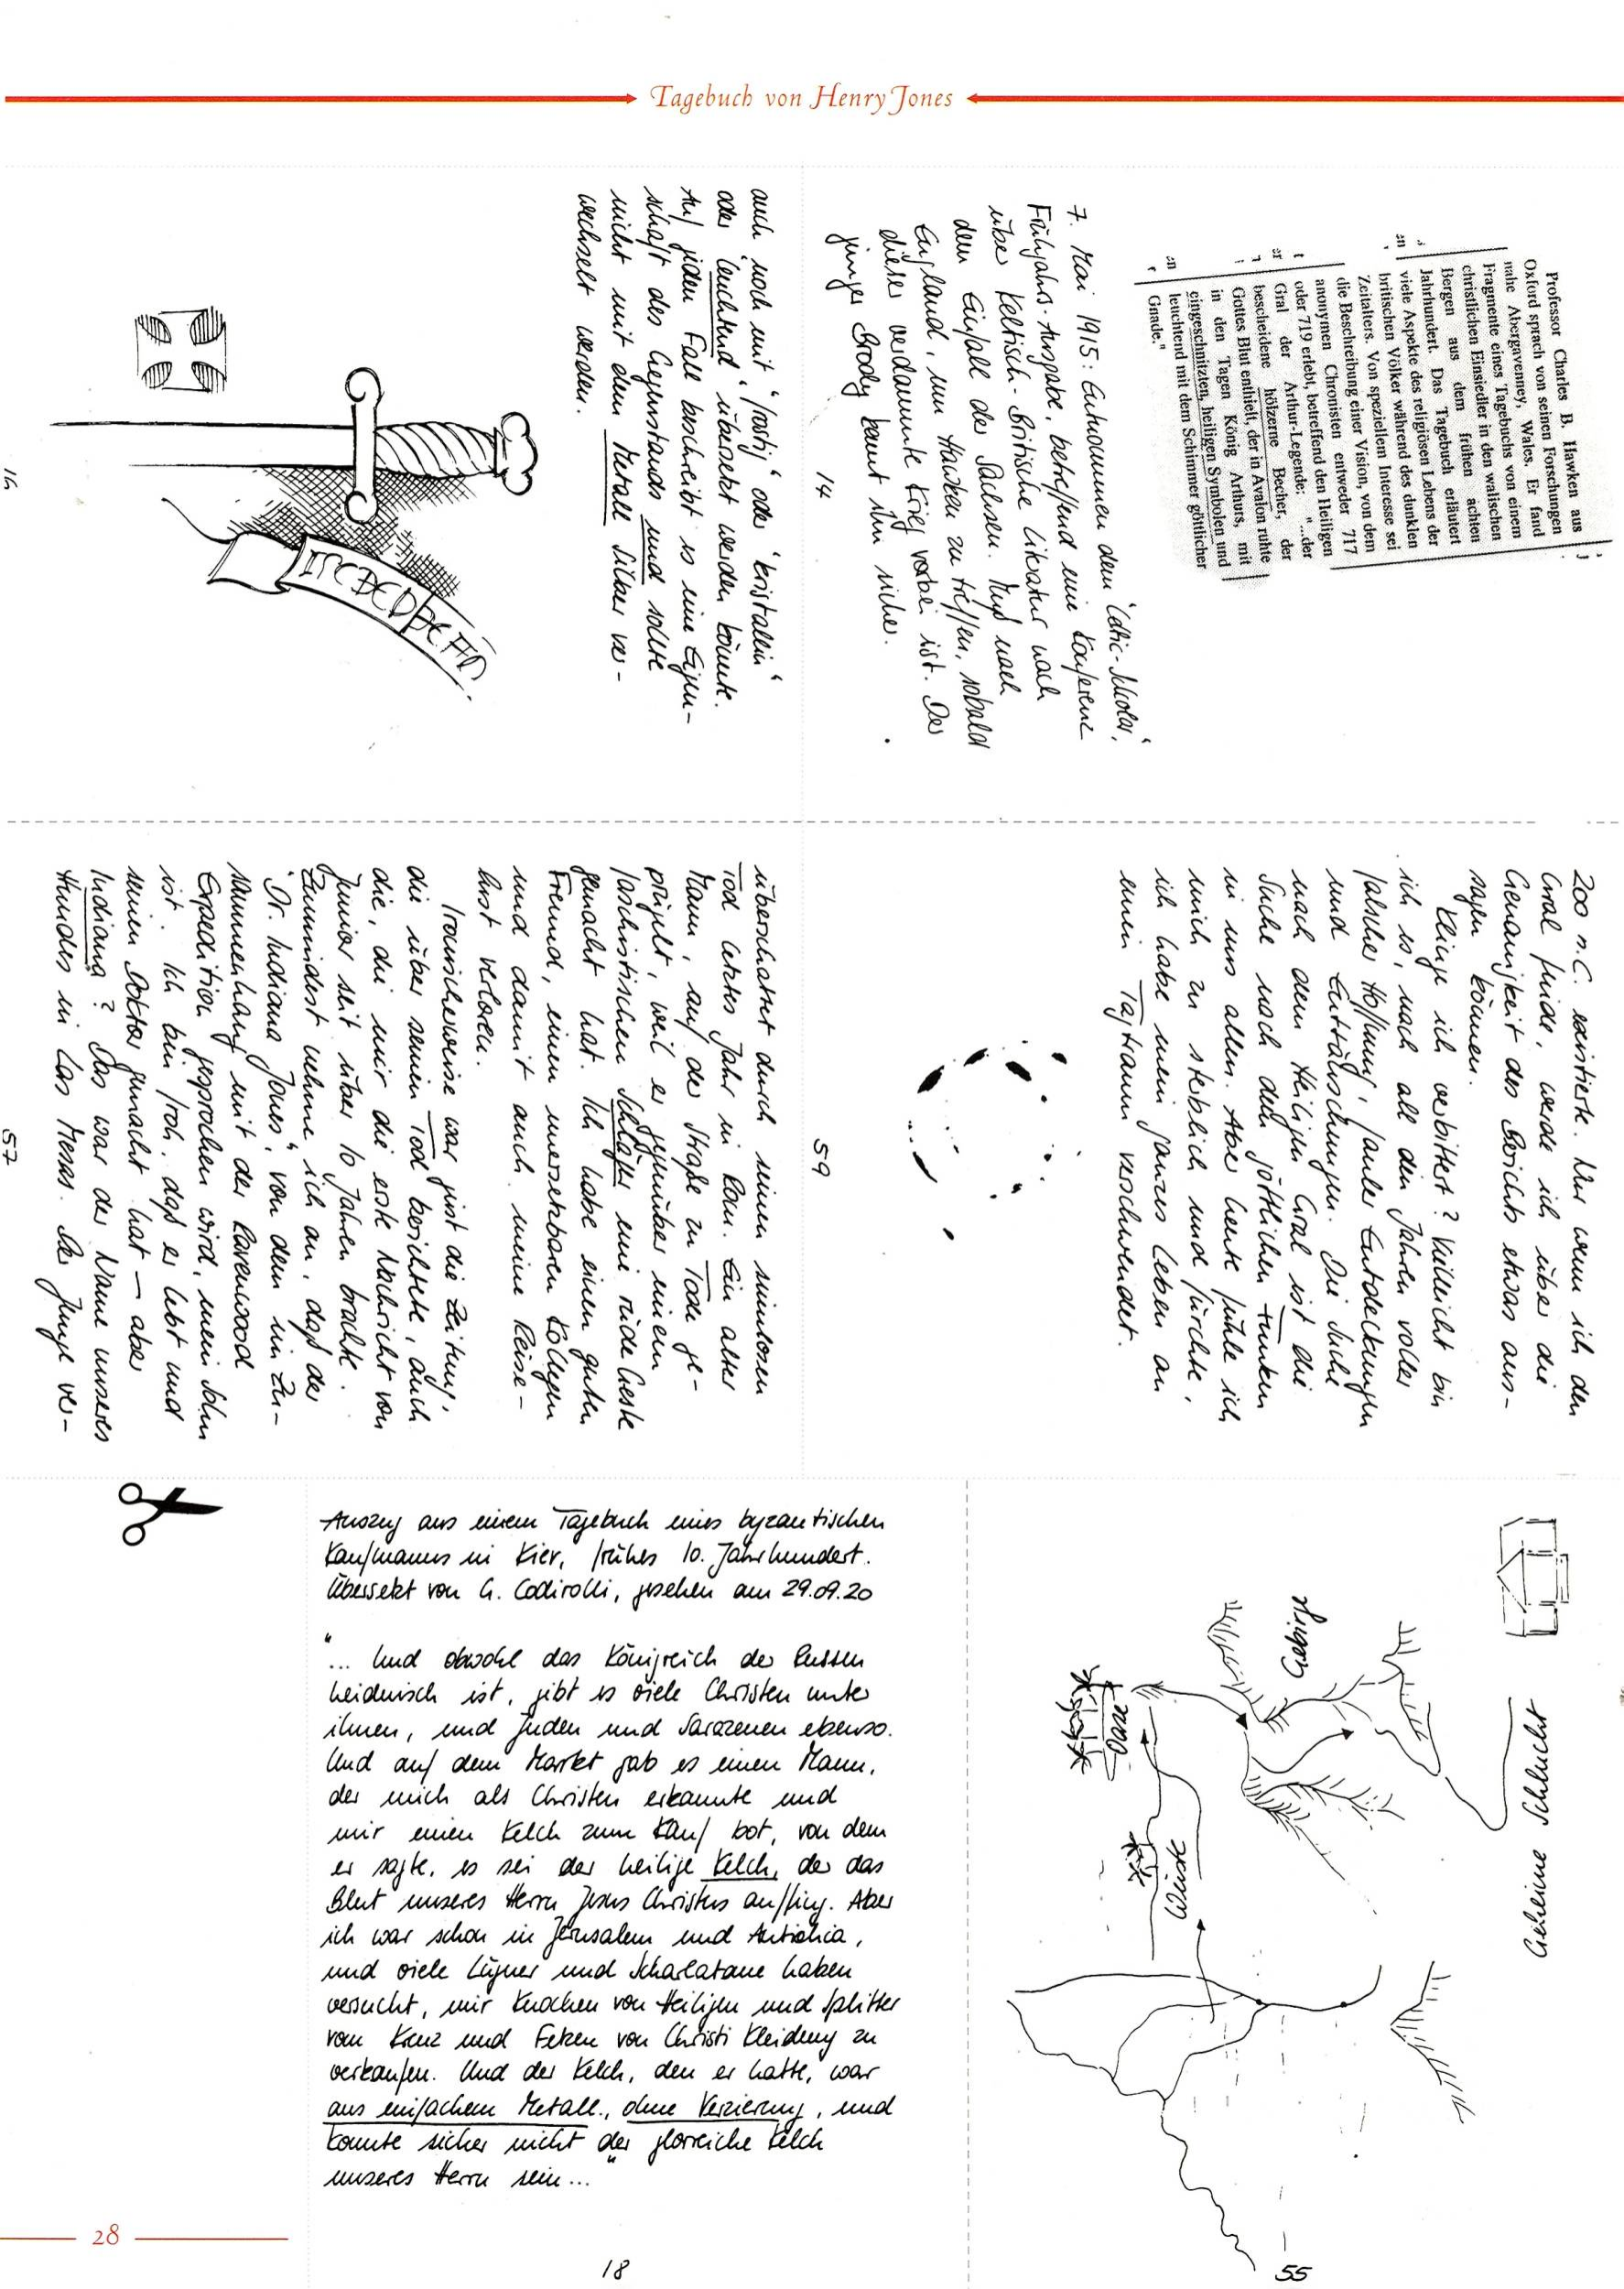 Tagebuch von Henry Jones
Professor Charles B. Hawken aus
Oxford sprach von seinen Forschungen
nahe Abergavenney, Wales. Er fand
Fragmente eines Tagebuchs von einem
christlichen Einsiedler in den walisischen
Bergen aus dem frühen achten
Jahrhundert. Das Tagebuch erläutert
viele Aspekte des religiösen Lebens der
britischen Völker während des dunklen
Zeitalters. Von speziellem Interesse sei
die Beschreibung einer Vision, von dem
anonymen Chronisten entweder 717
oder 719 erlebt, betreffend den Heiligen
Gral der Arthur-Legende: "...der
bescheidene hölzerne Becher, der
Gottes Blut enthielt, der in Avalon ruhte
in den Tagen König Arthurs, mit
eingeschnitzten, heiligen Symbolen und
leuchtend mit dem Schimmer göttlicher
Gnade."
7. Mai 1915: Entnommen dem "Celtic-Scholar",
Frühjahrs-Ausgabe, betreffend eine Konferenz
über Keltisch-Britische Literatur nach
dem Einfall der Sachsen. Muß nach
England, um Hawken zu treffen, sobald
dieser verdammte Krieg vorbei ist. Der
junge Brody kennt ihn sicher.
14
auch noch mit "frostig" oder "kristallin"
oder leuchtend übersetzt werden könnte.
Auf jeden Fall beschreibt es eine Eigen-
schaft des Gegenstands und sollte
nicht mit dem Metall Silber ver-
wechselt werden.
16
200 n.C. existierte. Nur wenn ich den
Gral finde, werde ich über die
Genauigkeit des Berichts etwas aus-
sagen können.
Klinge ich verbittert? Vielleicht bin
ich es, nach all den Jahren voller
falscher Hoffnung, fauler Entdeckungen
und Enttäuschungen. Die Suche
nach dem Heiligen Gral ist die
Suche nach dem göttlichen Funken
in uns allen. Aber heute fühle ich
mich zu sterblich und fürchte,
ich habe mein ganzes Leben an
einen Tagtraum verschwendet.
59
überschattet durch einen sinnlosen
Tod letztes Jahr in Rom. Ein alter
Mann, auf der Straße zu Tode ge-
prügelt, weil er gegenüber einem
faschistischen Schläger eine rüde Geste
gemacht hat. Ich habe einen guten
Freund, einen unersetzbaren Kollegen
und damit auch meine Reise-
lust verloren.
Ironischerweise war just die Zeitung,
die über seinen Tod berichtete, auch
die, die mir die erste Nachricht von
Junior seit über 10 Jahren brachte.
Zumindest nehme ich an, daß der
"Dr. Indiana Jones", von dem im Zu-
sammenhang mit der Ravenwood
Expedition gesprochen wird, mein Sohn
ist. Ich bin froh, daß er lebt und
seinen Doktor gemacht hat – aber
Indiana? Das war der Name unseres
Hundes in Las Mesas. Der Junge ver-
57
Auszug aus einem Tagebuch eines byzantischen
Kaufmanns in Kier, frühes 10. Jahrhundert.
Übersetzt von G. Codirolli, gesehen am 29.09.20
"... Und obwohl das Königreich der Russen
heidnisch ist, gibt es viele Christen unter
ihnen, und Juden und Sarazenen ebenso.
Und auf dem Markt gab es einen Mann,
der mich als Christen erkannte und
mir einen Kelch zum Kauf bot, von dem
er sagte, es sei der heilige Kelch, der das
Blut unseres Herrn Jesus Christus auffing. Aber
ich war schon in Jerusalem und Antiohia,
und viele Lügner und Scharlatane haben
versucht, mir Knochen von Heiligen und Splitter
vom Kreuz und Fetzen von Christi Kleidung zu
verkaufen. Und der Kelch, den er hatte, war
aus einfachem Metall, ohne Verzierung, und
konnte sicher nicht der glorreiche Kelch
unseres Herrn sein..."
18
Geheime Schlucht
Gebirge
Oase
Wüste
55
28